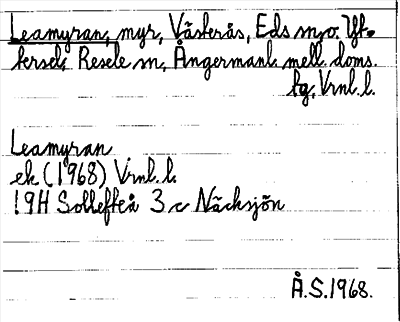 Leamyran, myr, Västerås, Eds sn, o. Yt-
terselj, Resele sn, Ångermanl. mell. doms.
fg, Vrnl. l.
Leamyran
ek (1968) Vrnl. l.
19H Sollefteå 3 c Näcksjön
Å.S. 1968.